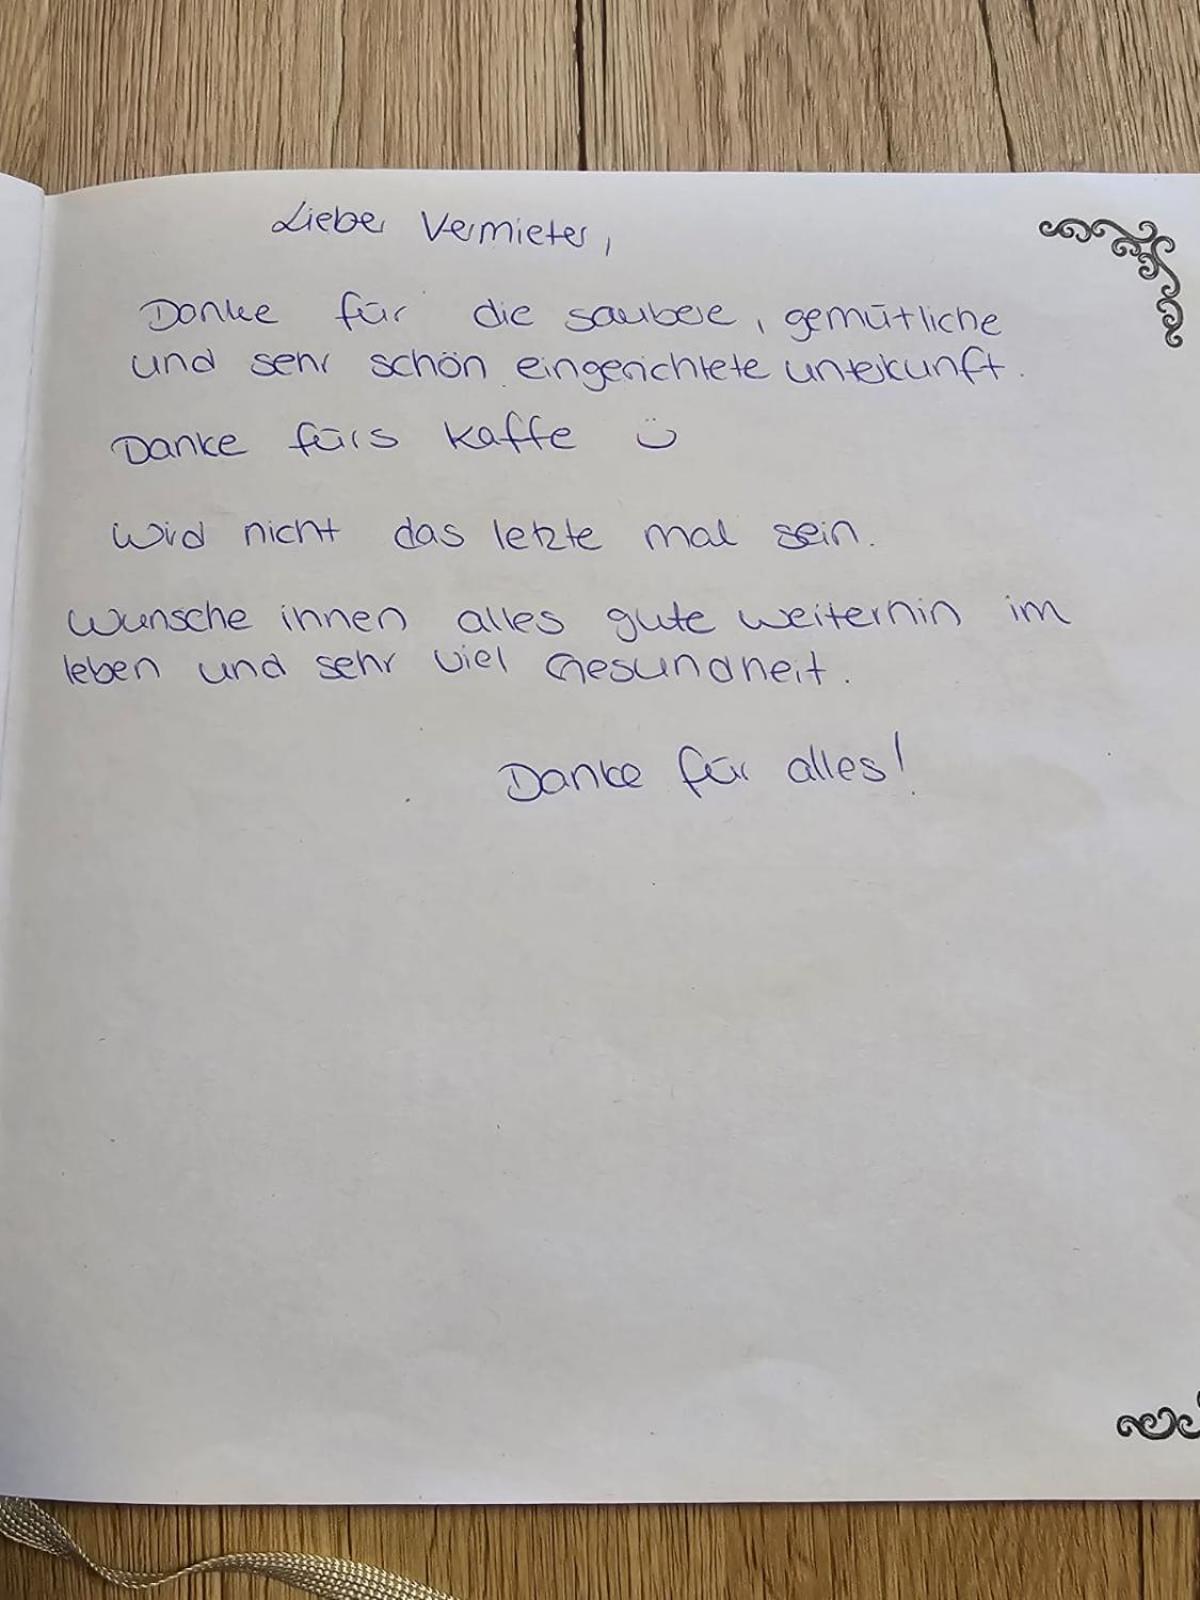 Lieber Vermieter,
Danke für die saubere, gemütliche
und sehr schön eingerichtete unterkunft.
Danke fürs kaffe ü
wird nicht das letzte mal sein.
wünsche ihnen alles gute weiterhin im
leben und sehr viel Gesundheit.
Danke für alles!